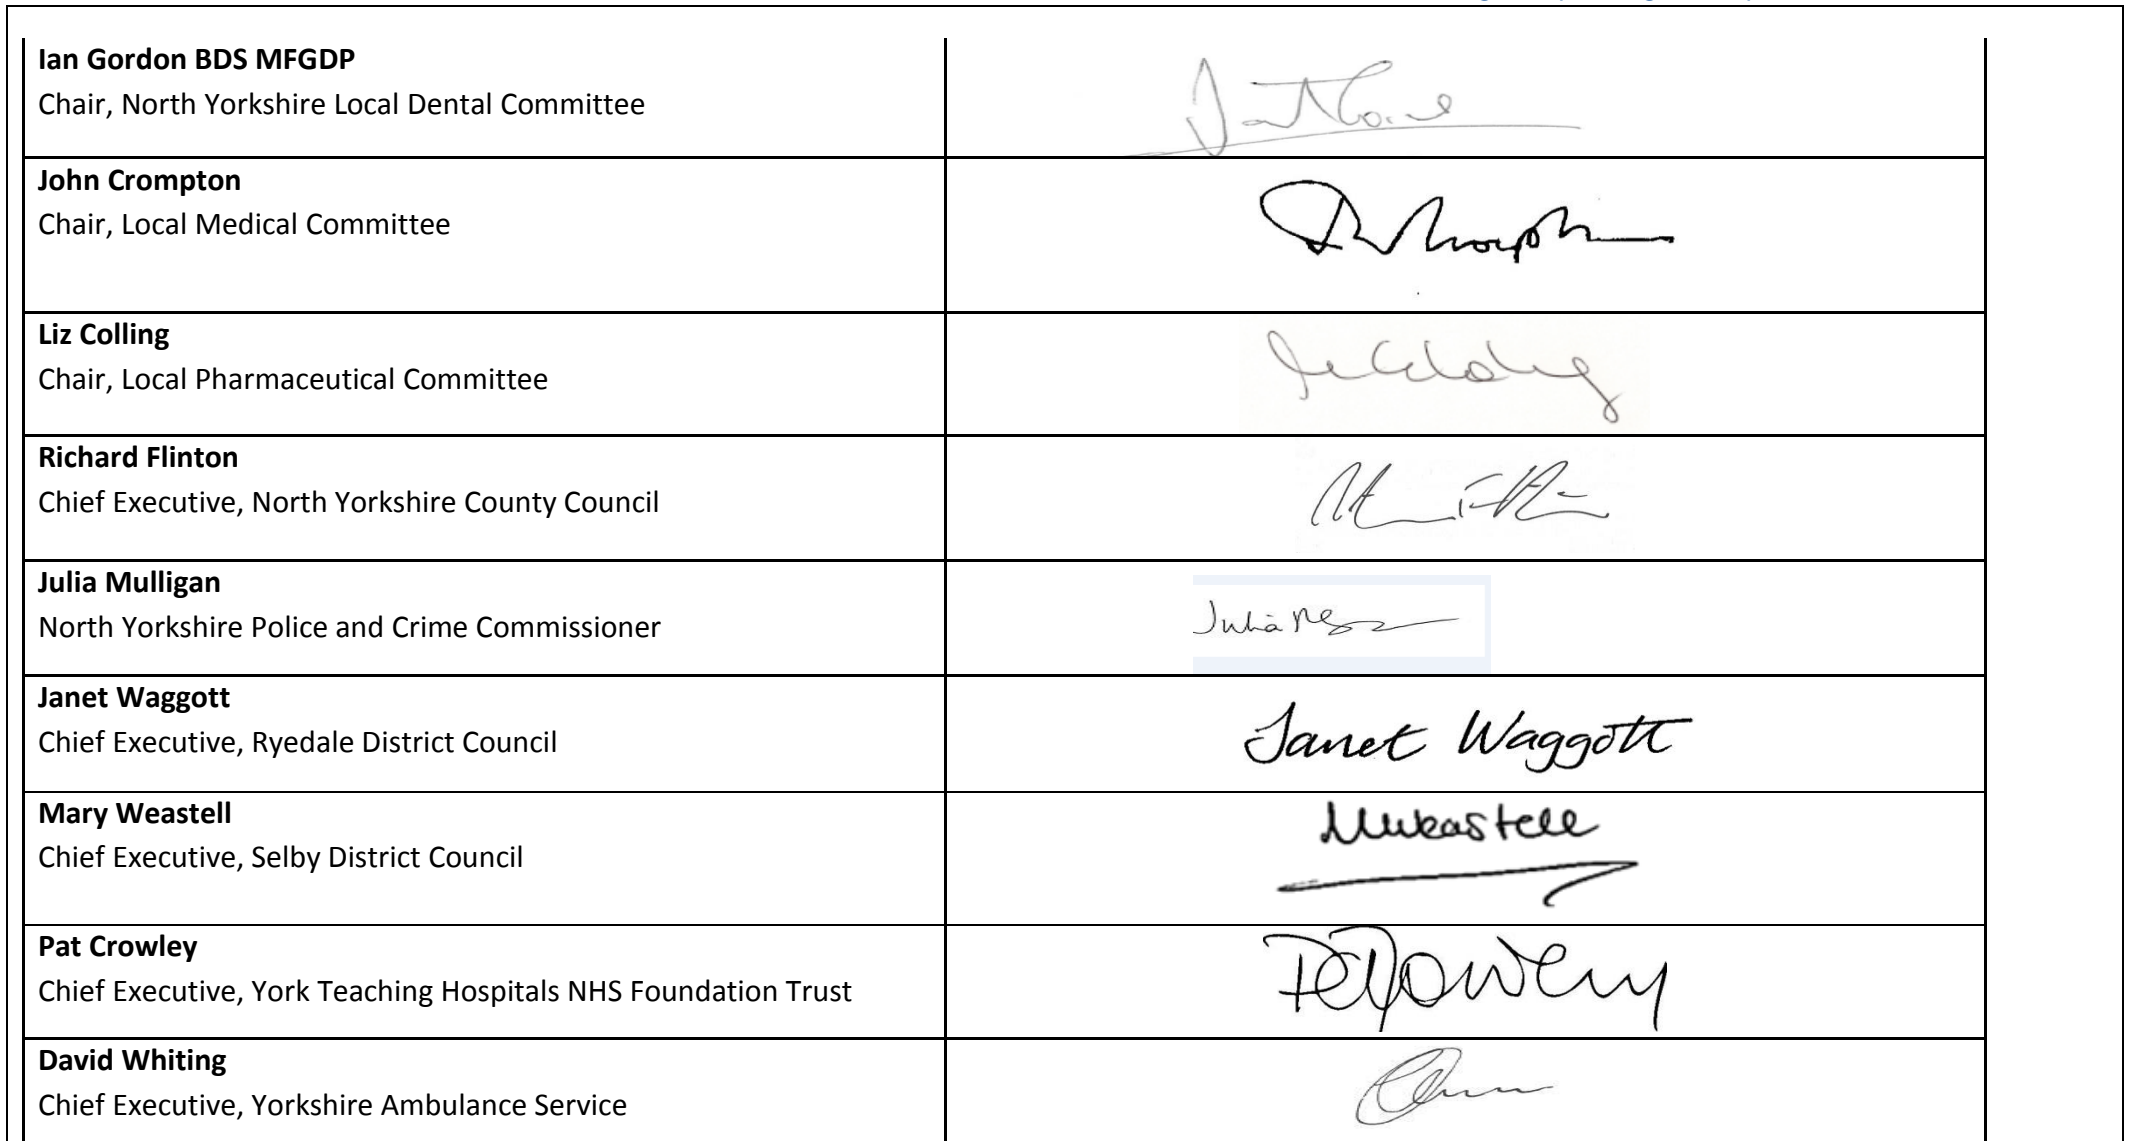 Ian Gordon BDS MFGDP
Chair, North Yorkshire Local Dental Committee
John Crompton
Chair, Local Medical Committee
Liz Colling
Chair, Local Pharmaceutical Committee
Richard Flinton
Chief Executive, North Yorkshire County Council
Julia Mulligan
North Yorkshire Police and Crime Commissioner
Julia
Janet Waggott
Chief Executive, Ryedale District Council
Janet Waggott
Mary Weastell
Chief Executive, Selby District Council
MWeastell
Pat Crowley
Chief Executive, York Teaching Hospitals NHS Foundation Trust
David Whiting
Chief Executive, Yorkshire Ambulance Service